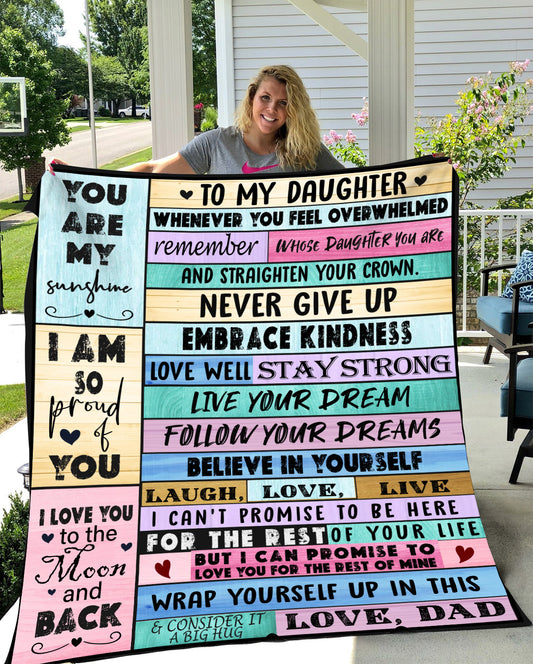 YOU
ARE
MY
sunshine
I AM
SO
proud
of
YOU
I LOVE YOU
to the
Moon
and
BACK
TO MY DAUGHTER
WHENEVER YOU FEEL OVERWHELMED
remember WHOSE DAUGHTER YOU ARE
AND STRAIGHTEN YOUR CROWN.
NEVER GIVE UP
EMBRACE KINDNESS
LOVE WELL STAY STRONG
LIVE YOUR DREAM
FOLLOW YOUR DREAMS
BELIEVE IN YOURSELF
LAUGH, LOVE, LIVE
I CAN'T PROMISE TO BE HERE
FOR THE REST OF YOUR LIFE
BUT I CAN PROMISE TO
LOVE YOU FOR THE REST OF MINE
WRAP YOURSELF UP IN THIS
& CONSIDER IT
A BIG HUG
LOVE, DAD